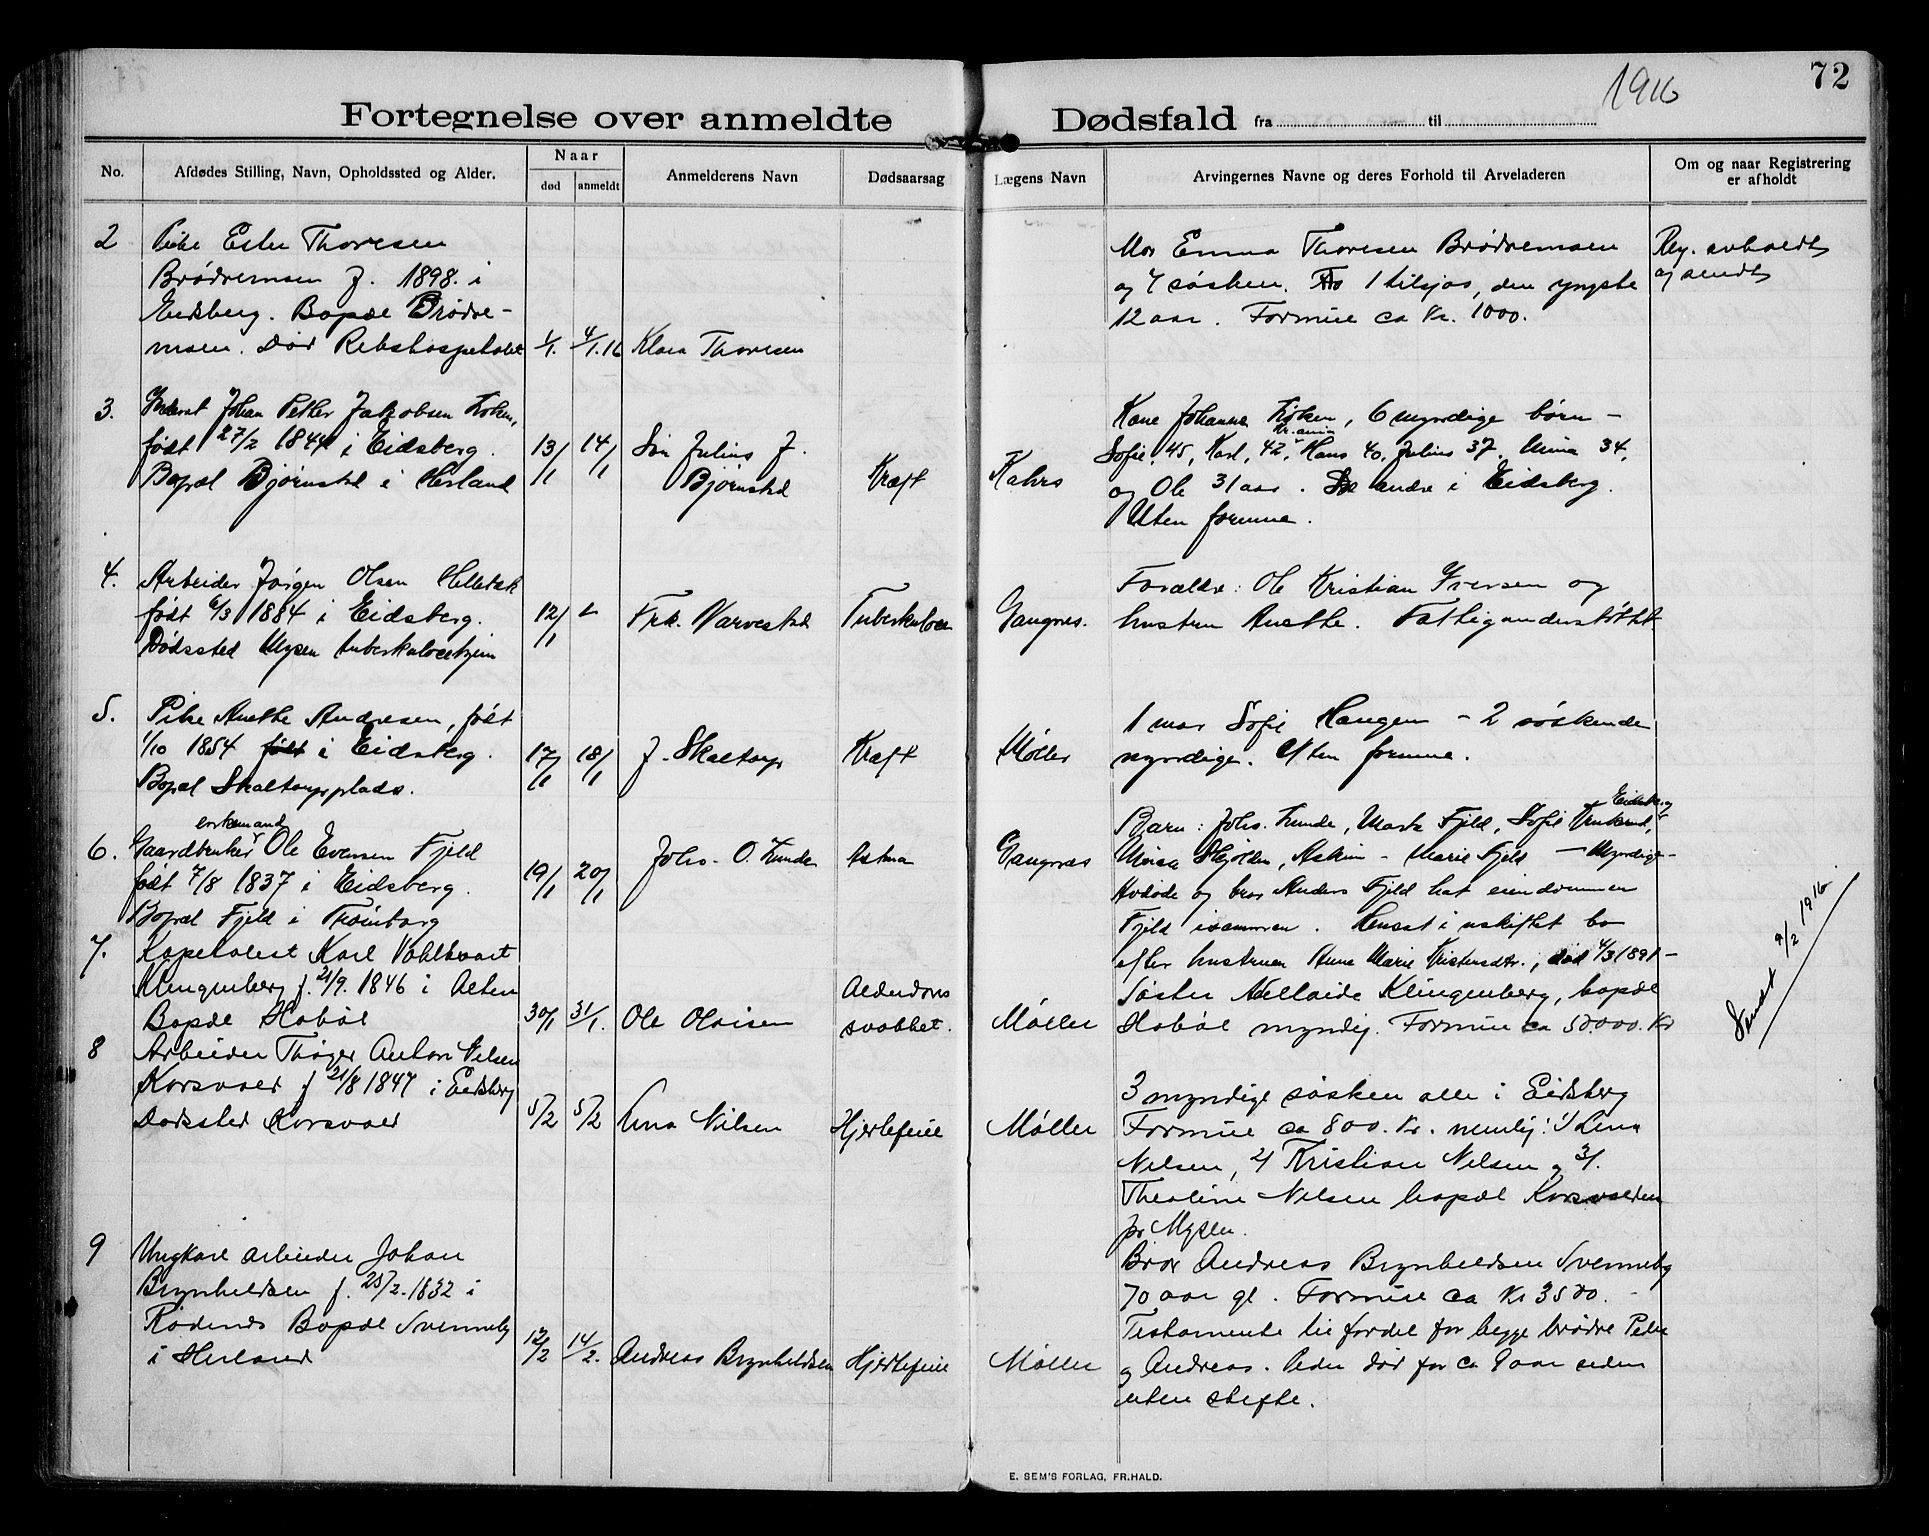 1916
72
Fortegnelse over anmeldte Dødsfald fra til
No.
Afdødes Stilling, Navn, Opholdssted og Alder.
Naar
død
anmeldt
Anmelderens Navn
Dødsaarsag
Lægens Navn
Arvingernes Navne og deres Forhold til Arveladeren
Om og naar Registrering
er afholdt
2
Pike Ester Thoresen
Brødremoen f. 1898. i
Eidsberg. Bopæl Brødre-
moen. Død Rikshospitalet
1/1.
4/1.16
Klara Thoresen
Mor Emma Thoresen Brødremoen
og 7 søsken. 1 tilsjøs, den yngste
12 aar. Formue ca Kr. 1000.
Reg. avholdt
og sendt
3.
Johan Petter Jakobsen
født 27/2 1844 i Eidsberg.
Bopæl Bjørnstad i Herland
13/1
14/1
Søn Julius J.
Bjørnstad
Kræft
Kahrs
Kone Johanne, 6 myndige børn -
Kr.ania
Sofie, 45, Karl, 42, Hans 40, Julius 37. Mina 34,
og Ole 31 aar. De andre i Eidsberg.
Uten formue.
4.
Arbeider Jørgen Olsen
født 6/3 1884 i Eidsberg.
Dødssted Mysen tuberkulosehjem
12/1
Frk. Narvestad
Tuberkulose
Gangnæs.
Forældre: Ole Kristian Iversen og
hustru Anethe. Fattigunderstøttet
5.
Pike Anethe Andresen, født
1/10 1854 født i Eidsberg.
Bopæl Skaltorpplads.
17/1
18/1
J. Skaltorp
Kræft
Møller
1 mor Sofie Haugen - 2 søskende
myndige. Uten formue.
6.
enkemand
Gaardbruker Ole Evensen Fjeld
født 7/8 1837 i Eidsberg.
Bopæl Fjeld i Trømborg
19/1
20/1
Johs. O. Lunde
Astma
Gangnæs
Eidsberg
Barn: Johs. Lunde, Marte Fjeld, Sofie
Mina Skjolden, Askim - Marie Fjeld - Myndige -
Avdøde og bror Anders Fjeld hat eiendommen
Fjeld isammen. Hensat i uskiftet bo
efter hustruen Anne Marie Kristensdtr., død 4/3 1891 -
7.
Kapitalist Karl
Klingenberg f. 21/9. 1846 i Alten
Bopæl Hobøl
30/1
31/1.
Ole Olsisen
Alderdoms
svakhet.
Møller
Søster Adellaide Klingenberg, bopæl
Hobøl myndig. Formue ca 50.000. Kr
Sendt 9/2 1916
8
Arbeider Thøger Anton Nilsen
Korsvold f 21/8 1847 i Eidsberg
Dødssted Korsvold
5/2
5/2
Lina Nilsen
Hjertefeil
Møller
3 myndige søsken alle i Eidsberg
Formue ca 800. Kr. nemlig: 1/ Lina
Nilsen, 2/ Kristian Nilsen og 3/.
Theoline Nilsen bopæl Korsvolden
pr Mysen.
9
Ungkarl arbeider Johan
Brynhildsen f. 25/2. 1832 i
Rødenes Bopæl Svenneby
i Herland
12/2
14/2.
Andreas Brynhildsen
Hjertefeil
Møller
Bror Andreas Brynhildsen Svenneby
70 aar gl. Formue ca Kr 3500. -
Testamente til fordel for begge brødre Peder
og Andreas. Peder død for ca 9 aar siden
uten skifte.
E. SEM'S FORLAG, FR.HALD.